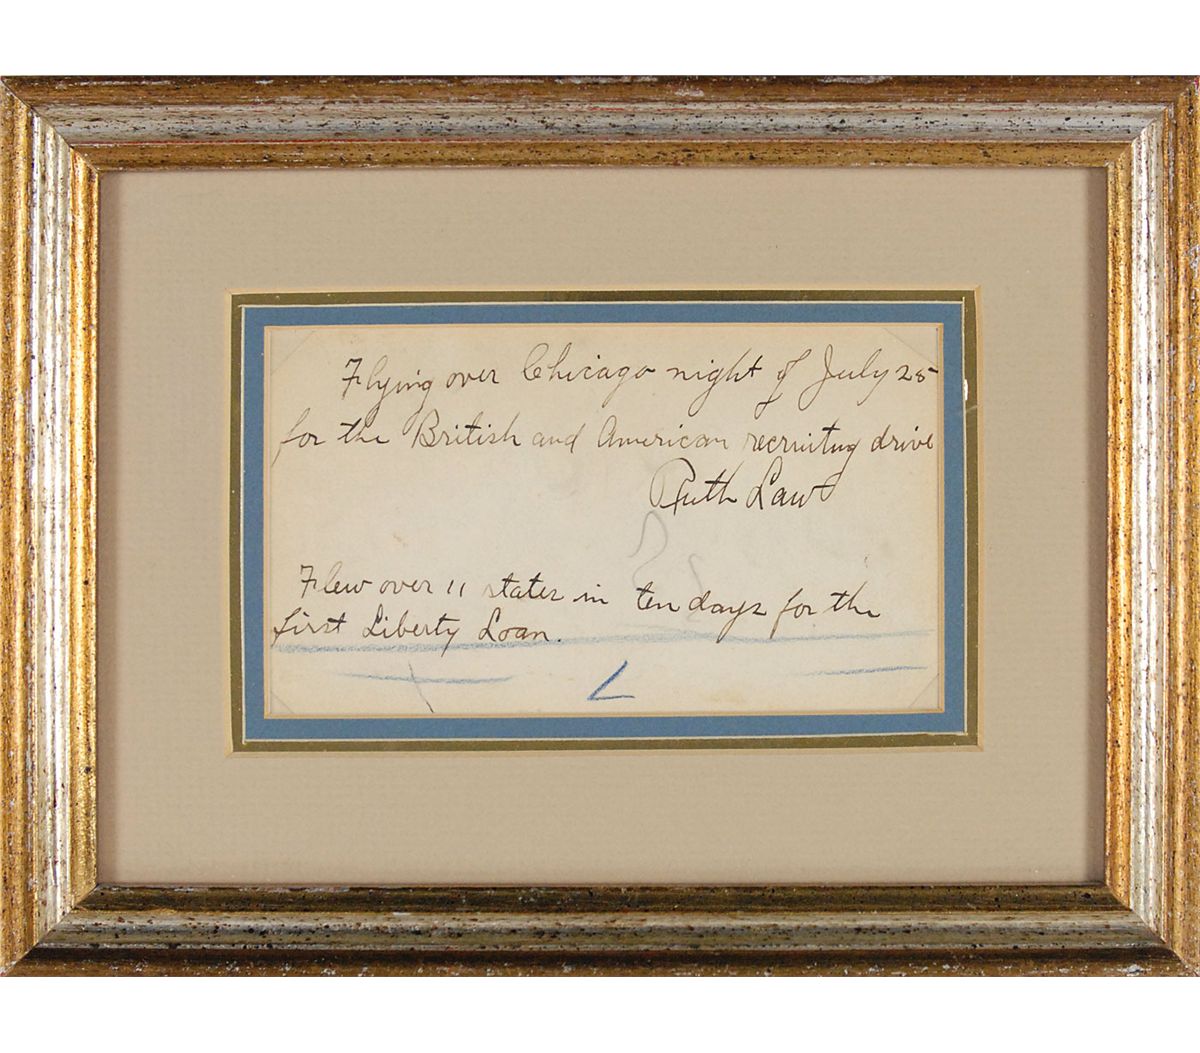 Flying over Chicago night of July 25
for the British and American recruiting drive
Ruth Law
Flew over 11 states in ten days for the
first Liberty Loan.